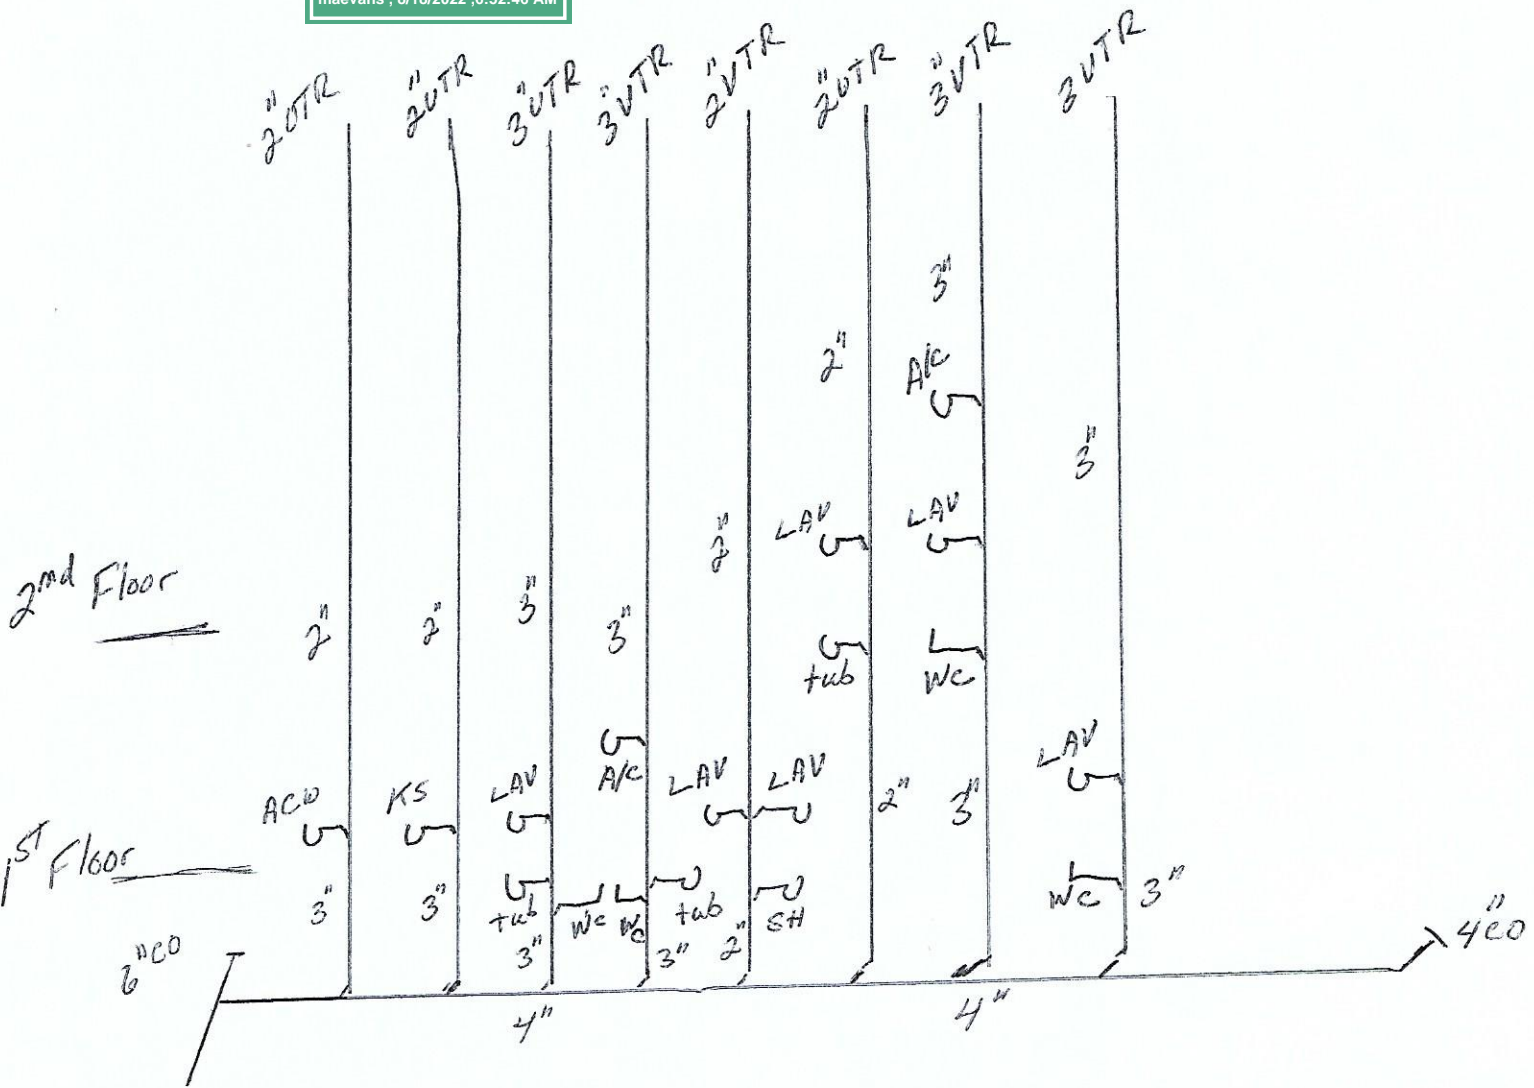 maevans , 8/18/2022 ,6:52:46 AM
2" VTR
2" VTR
3" VTR
3" VTR
2" VTR
2" VTR
3" VTR
3 VTR
3"
2"
A/C
3"
2"
LAV
LAV
2nd Floor
2"
2"
3"
3"
tub
WC
A/C
LAV
ACW
KS
LAV
LAV
LAV
2"
3"
1ST Floor
3"
3"
tub
WC
WC
tub
SH
WC
3"
6" CO
3"
3"
2"
4" CO
4"
4"